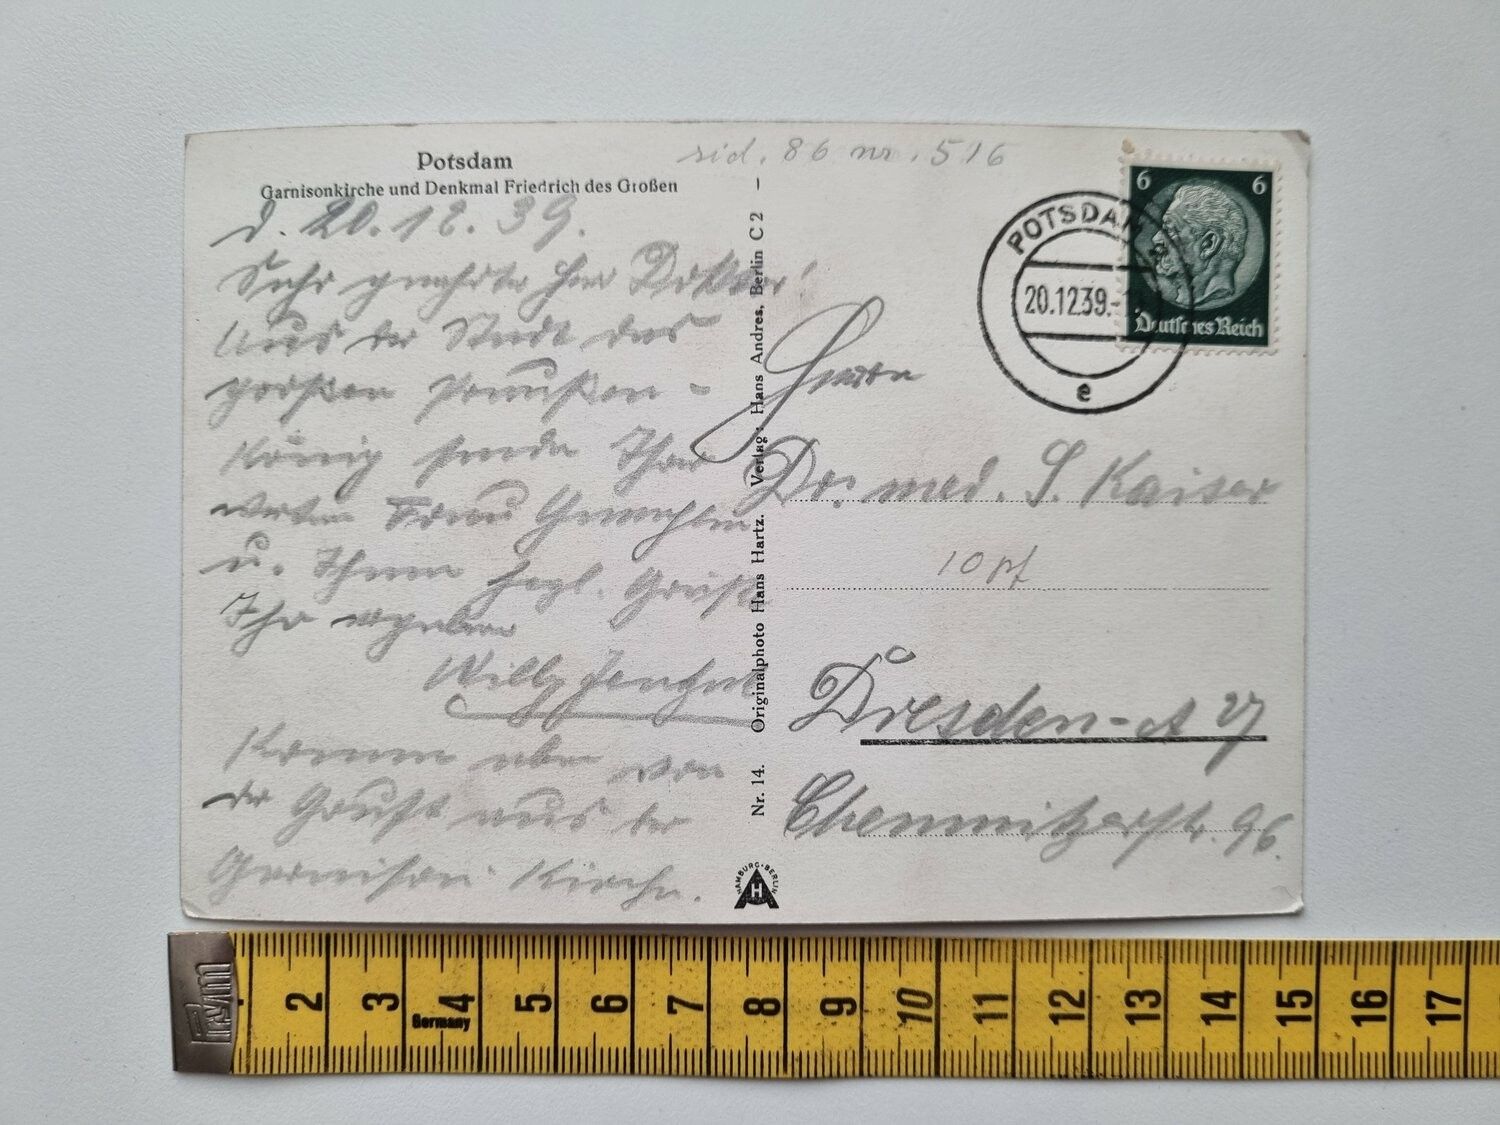 Potsdam
Garnisonkirche und Denkmal Friedrich des Großen
sid. 86 nr. 516
d. 20.12.39.
Sehr geehrter Herr Doktor!
Aus der Stadt des
großen Preußen-
König sende Ihrer
werten Frau Gemahlin
u. Ihnen herzl. Grüße
Ihr ergebener
Willy
Komme eben von
der Gruft aus der
Garnison-Kirche.
Nr. 14. Originalphoto Hans Hartz. Verlag: Hans Andres, Berlin C 2 –
HAMBURG-BERLIN
H
6 6
Deutsches Reich
POTSDAM
20.12.39.-1
e
Herrn
Dr. med. S. Kaiser
10 pf
Dresden-A 27
Chemnitzerstr. 96.
Prym
2 3 4 5 6 7 8 9 10 11 12 13 14 15 16 17
Germany